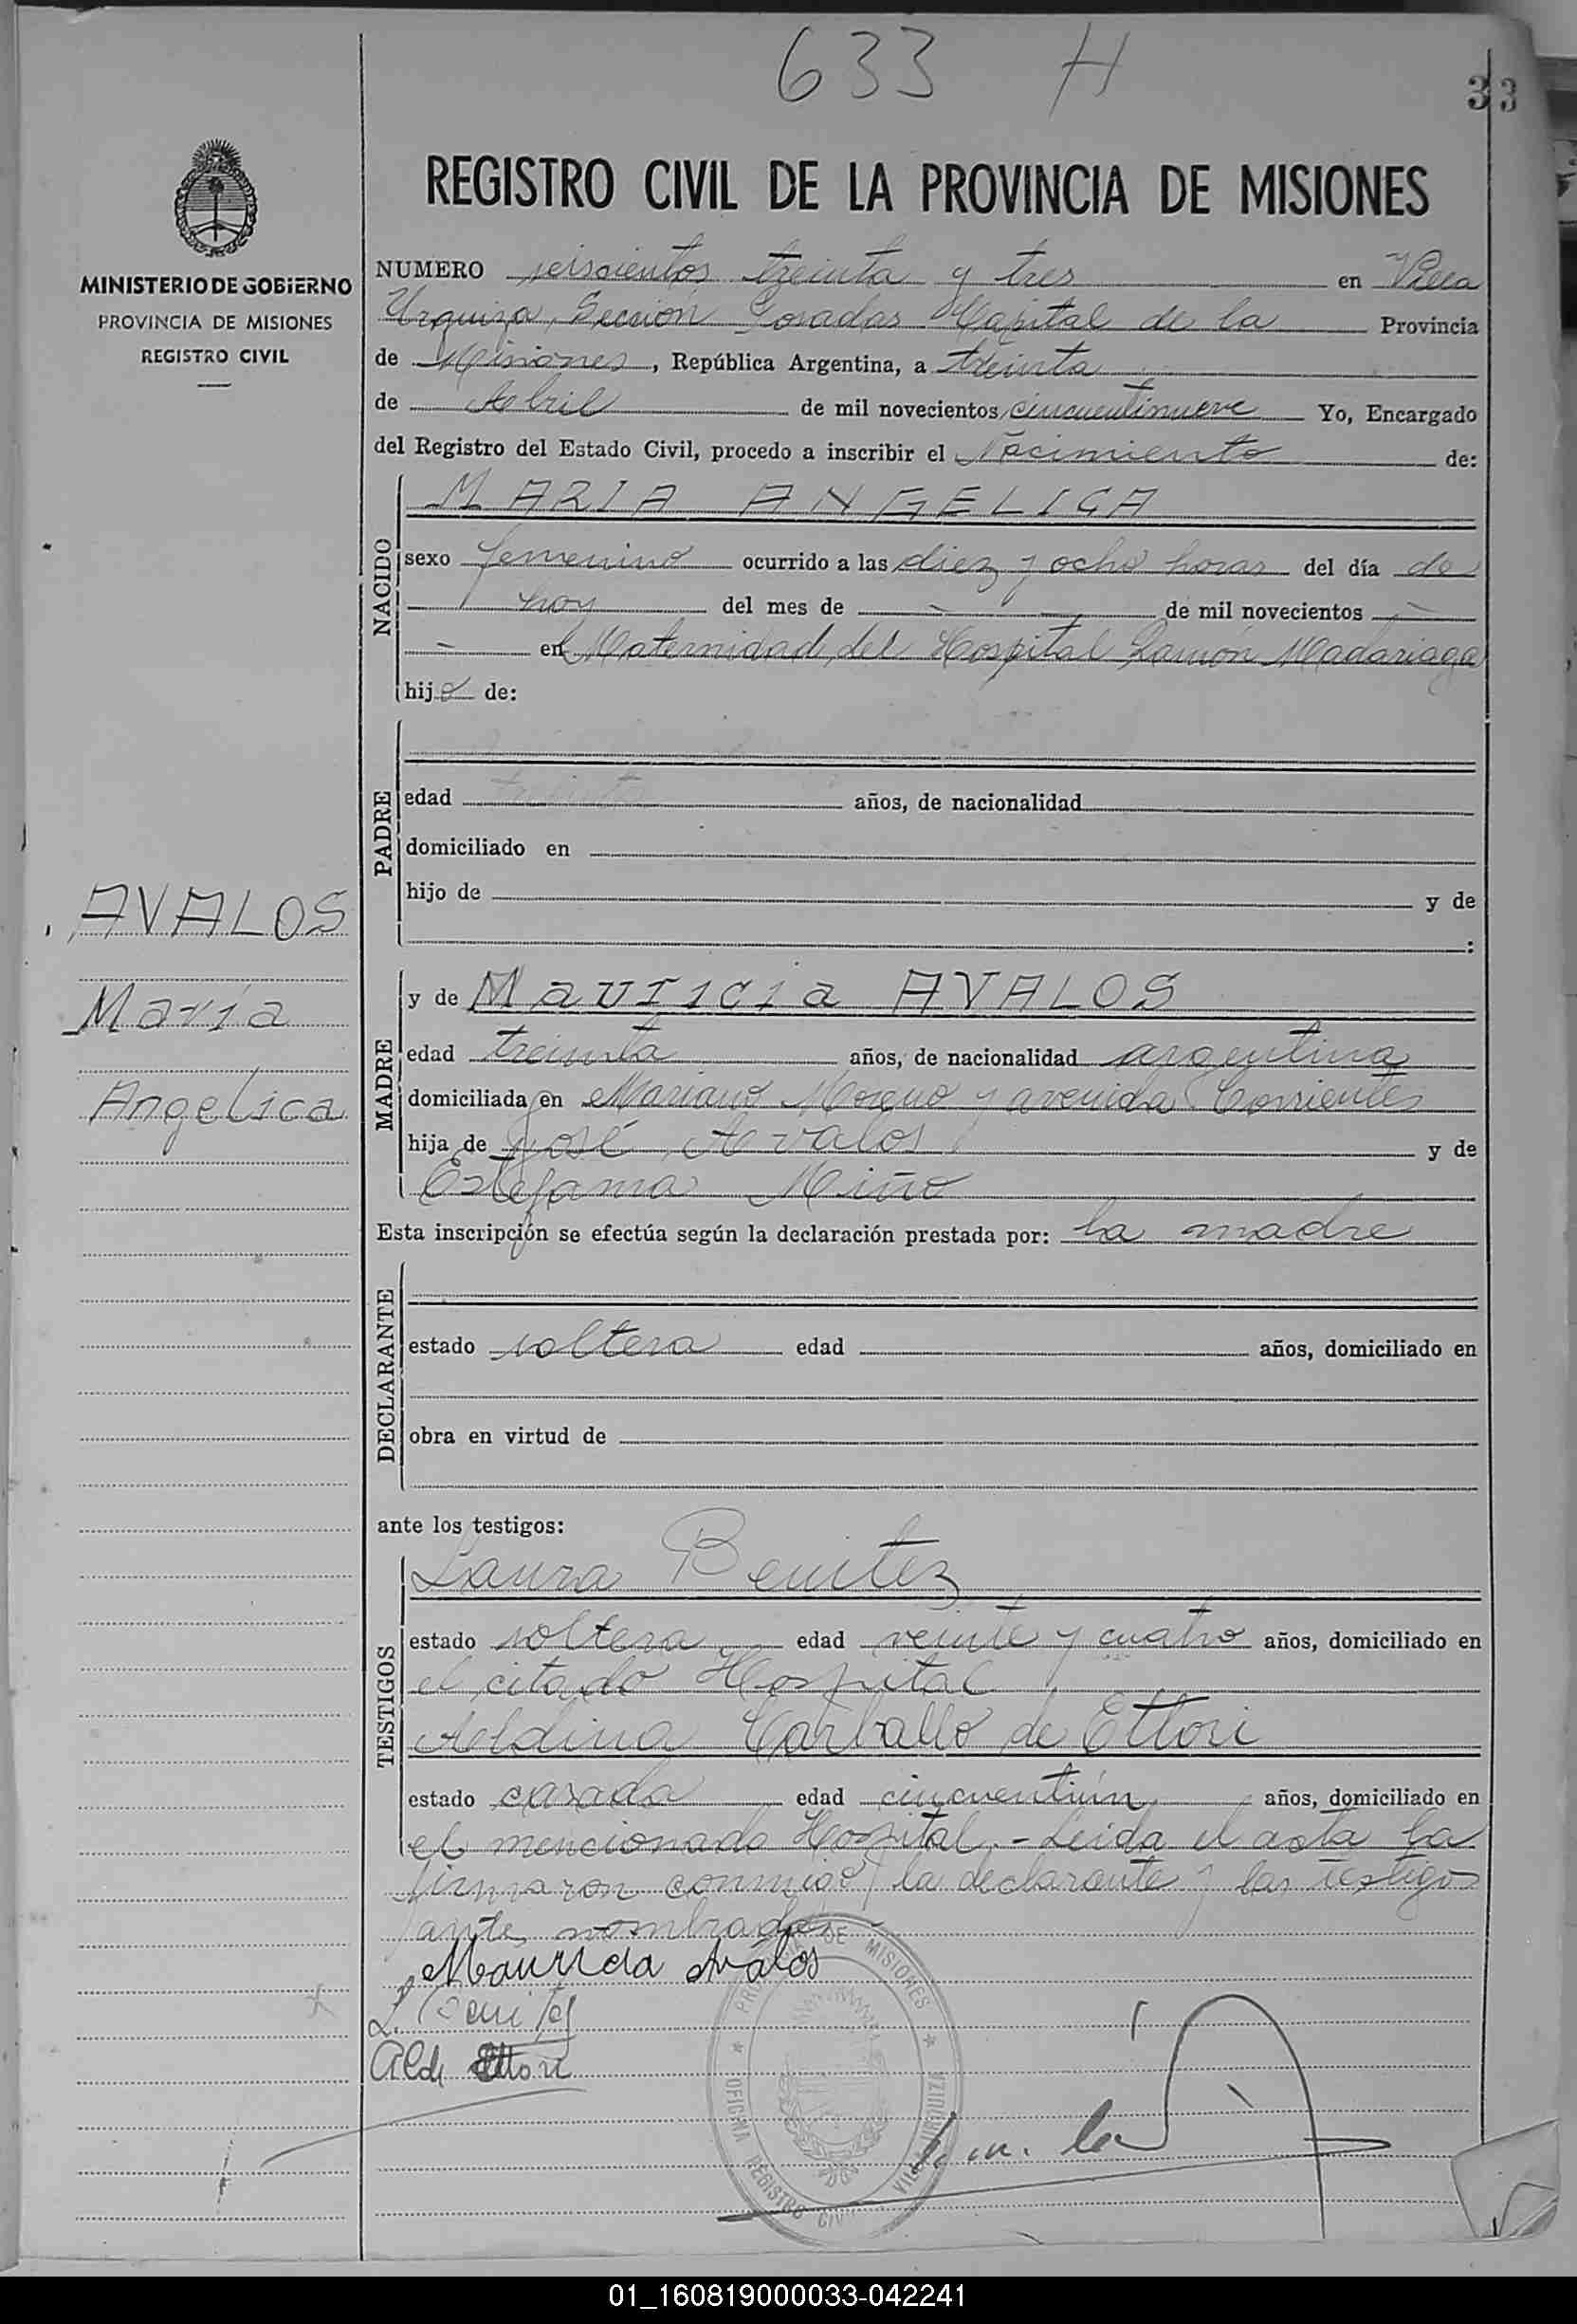 633 H
33
REGISTRO CIVIL DE LA PROVINCIA DE MISIONES
MINISTERIO DE GOBIERNO
PROVINCIA DE MISIONES
REGISTRO CIVIL
NUMERO seiscientos treinta y tres en Villa
Urquiza, Sección Posadas Capital de la Provincia
de Misiones, República Argentina, a treinta
de Abril de mil novecientos cincuentinueve Yo, Encargado
del Registro del Estado Civil, procedo a inscribir el Nacimiento de:
NACIDO
MARIA ANGELICA
sexo femenino ocurrido a las diez y ocho horas del día de
hoy del mes de - de mil novecientos -
- en Maternidad del Hospital Ramón Madariaga
hija de:
PADRE
edad treinta años, de nacionalidad
domiciliado en
hijo de y de
:
AVALOS
María
Angelica
MADRE
y de Mauricia AVALOS
edad treinta años, de nacionalidad argentina
domiciliada en Mariano Moreno y avenida Corrientes
hija de José Avalos y de
Estefania Miño
Esta inscripción se efectúa según la declaración prestada por: la madre
DECLARANTE
estado soltera edad años, domiciliado en
obra en virtud de
ante los testigos:
TESTIGOS
Laura Benitez
estado soltera edad veinte y cuatro años, domiciliado en
el citado Hospital
Aldina Carballo de Ettori
estado casada edad cincuentiún años, domiciliado en
el mencionado Hospital.- Leida el acta la
firmaron conmigo, la declarante y las testigos
ante nombradas.-
Mauricia Avalos
L. Benitez
Ald. Ettori
PROVINCIA DE MISIONES
OFICINA REGISTRO CIVIL VILLA URQUIZA
01_160819000033-042241